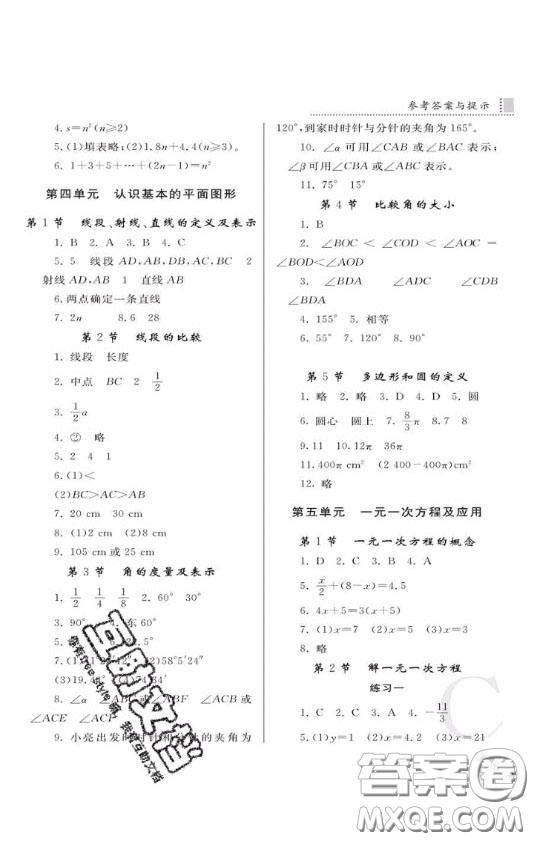 参考答案与提示
4. s=n²(n≥2)
5. (1)填表略；(2)1.8n+4.4(n≥3)。
6. 1+3+5+…+(2n-1)=n²
第四单元 认识基本的平面图形
第1节 线段、射线、直线的定义及表示
1. B 2. A 3. B 4. C
5. 5 线段 AD,AB,DB,AC,BC 2
射线 AD,AB 1 直线 AB
6. 两点确定一条直线
7. 2n 8. 6 28
第2节 线段的比较
1. 线段 长度
2. 中点 BC 2 1/2
3. 1/2 a
4. ② 略
5. 2 4 1
6. (1)<
(2)BC>AC>AB
7. 20 cm 30 cm
8. (1)2 cm (2)8 cm
9. 105 cm 或 25 cm
第3节 角的度量及表示
1. 1/2 1/4 1/8 2. 60° 30°
3. 90° 4. 东 60°
5.
7. (1) 42″ (2)58°5′24″
(3)19. (4)74.
8. ∠ABF ∠ACB 或
∠ACE ∠ACF
9. 小亮出发时时针和分针的夹角为
120°，到家时时针与分针的夹角为 165°。
10. ∠α 可用∠CAB 或∠BAC 表示；
∠β 可用∠CBA 或∠ABC 表示。
11. 75° 15°
第4节 比较角的大小
1. B
2. ∠BOC < ∠COD < ∠AOC =
∠BOD<∠AOD
3. ∠BDA ∠ADC ∠CDB
∠BDA
4. 155° 5. 相等
6. 55° 7. 120° 8. 90°
第5节 多边形和圆的定义
1. 略 2. 略 3. D 4. D 5. 圆
6. 圆心 圆上 7. 8/3 π 8. 7 8
9. 11 10. 12π 36π
11. 400π cm² (2 400-400π)cm²
12. 略
第五单元 一元一次方程及应用
第1节 一元一次方程的概念
1. D 2. C 3. B 4. A
5. x/2+(8-x)=4.5
6. 4x+5=3(x+5)
7. (1)x=7 (2)x=5 (3)x=8
8. 略
第2节 解一元一次方程
练习一
1. C 2. C 3. A 4. -11/3
5. (1)y=1 (2)x=2 (3)x=21
互助文档
答案圈